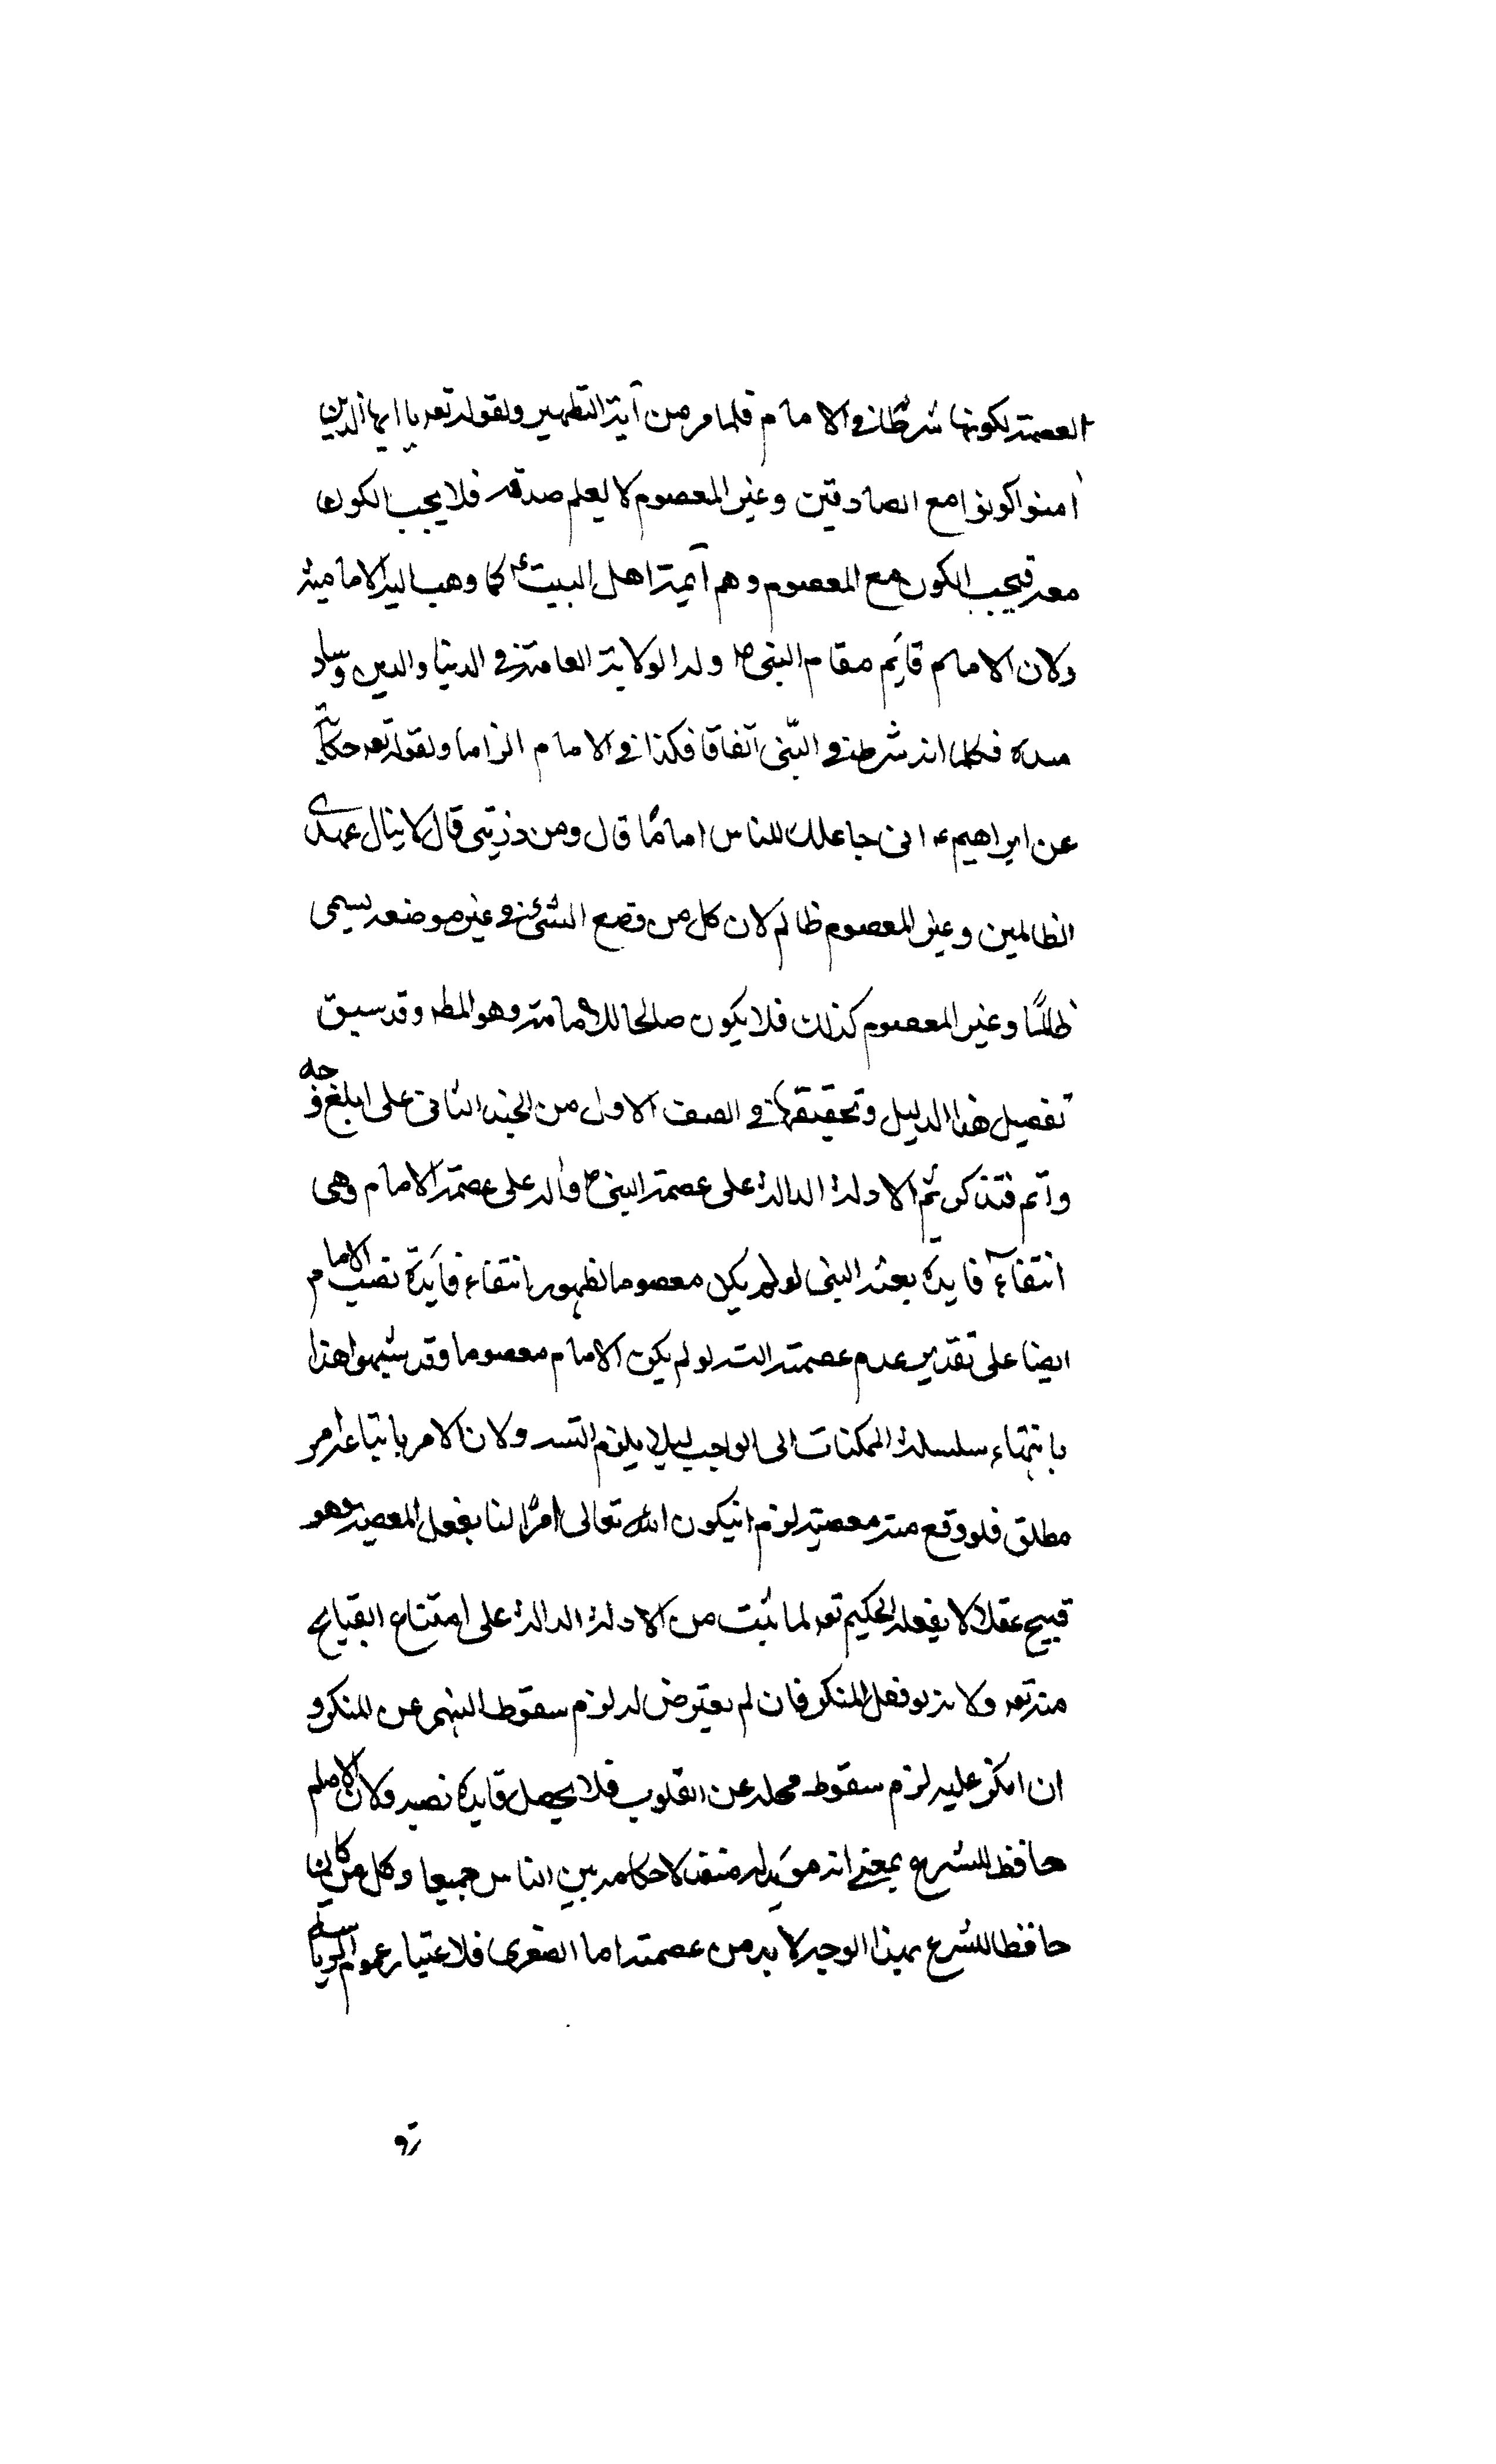 العصمة لكونها شرطا في الامام فلما مر من آية التطهير ولقوله تعه يا ايها الذين
امنوا كونوا مع الصادقين وغير المعصوم لا يعلم صدقه فلا يجب الكون
معه فيجب الكون مع المعصوم وهم آئمة اهل البيت ع كما وهب اليه الامامية
ولان الامام قائم مقام النبى ص وله الولاية العامة في الدنيا والدين
فكلما انه شرط في النبّى اتفاقا فكذا في الامام الزاما ولقوله تعه حكاية
عن ابراهيم ع انى جاعلك للناس اماما قال ومن ذريتى قال لا ينال عهدى
الظالمين وغير المعصوم ظالم لان كل من وضع الشئ في غير موضعه يسمى
ظالمًا وغير المعصوم كذلك فلا يكون صالحا للامامة وهو المط وقد سبق
تفصيل هذا الدليل وتحقيقها في الصف الاول من الجند الثانى على ابلغ وجه
واتم فتذكر ثم الادلة الدالة على عصمة النبى ص دالة على عصمة الامام وهى
انتفاء فايدة بعثة النبى لو لم يكن معصوما لظهور انتفاء فايدة نصب الامام
ايضا على تقدير عدم عصمته التسه لو لم يكن الامام معصوما وقد شبهوا هذا
بانتهاء سلسلة الممكنات الى الواجب ليلا يلزم التسه ولان الامر باتباعه امر
مطلق فلو وقع منه معصية لزم انيكون الله تعالى امرًا لنا بفعل المعصية وهو
قبيح عقلا لا يفعله الحكيم تعه لما ثبت من الادلة الدالة على امتناع القبايح
منه تعه ولانه لو فعل المنكر فان لم يعترض له لزم سقوط النهى عن المنكر و
ان انكر عليه لزم سقوط محله عن القلوب فلا يحصل فايدة نصبه ولان الامام
حافظ للشرع بمعنى انه مؤيد له منفذ لاحكامه بين الناس جميعا وكل من كان
حافظا للشرع بهذا الوجه لا بد من عصمته اما الصغرى فلاعتبار عموم الرياسة